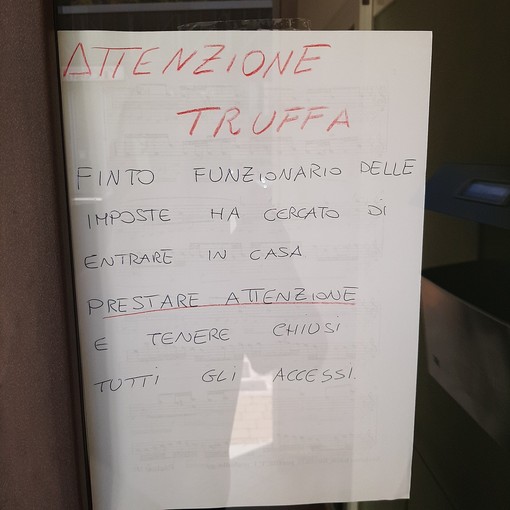 ATTENZIONE
TRUFFA
FINTO FUNZIONARIO DELLE
IMPOSTE HA CERCATO DI
ENTRARE IN CASA
PRESTARE ATTENZIONE
E TENERE CHIUSI
TUTTI GLI ACCESSI.